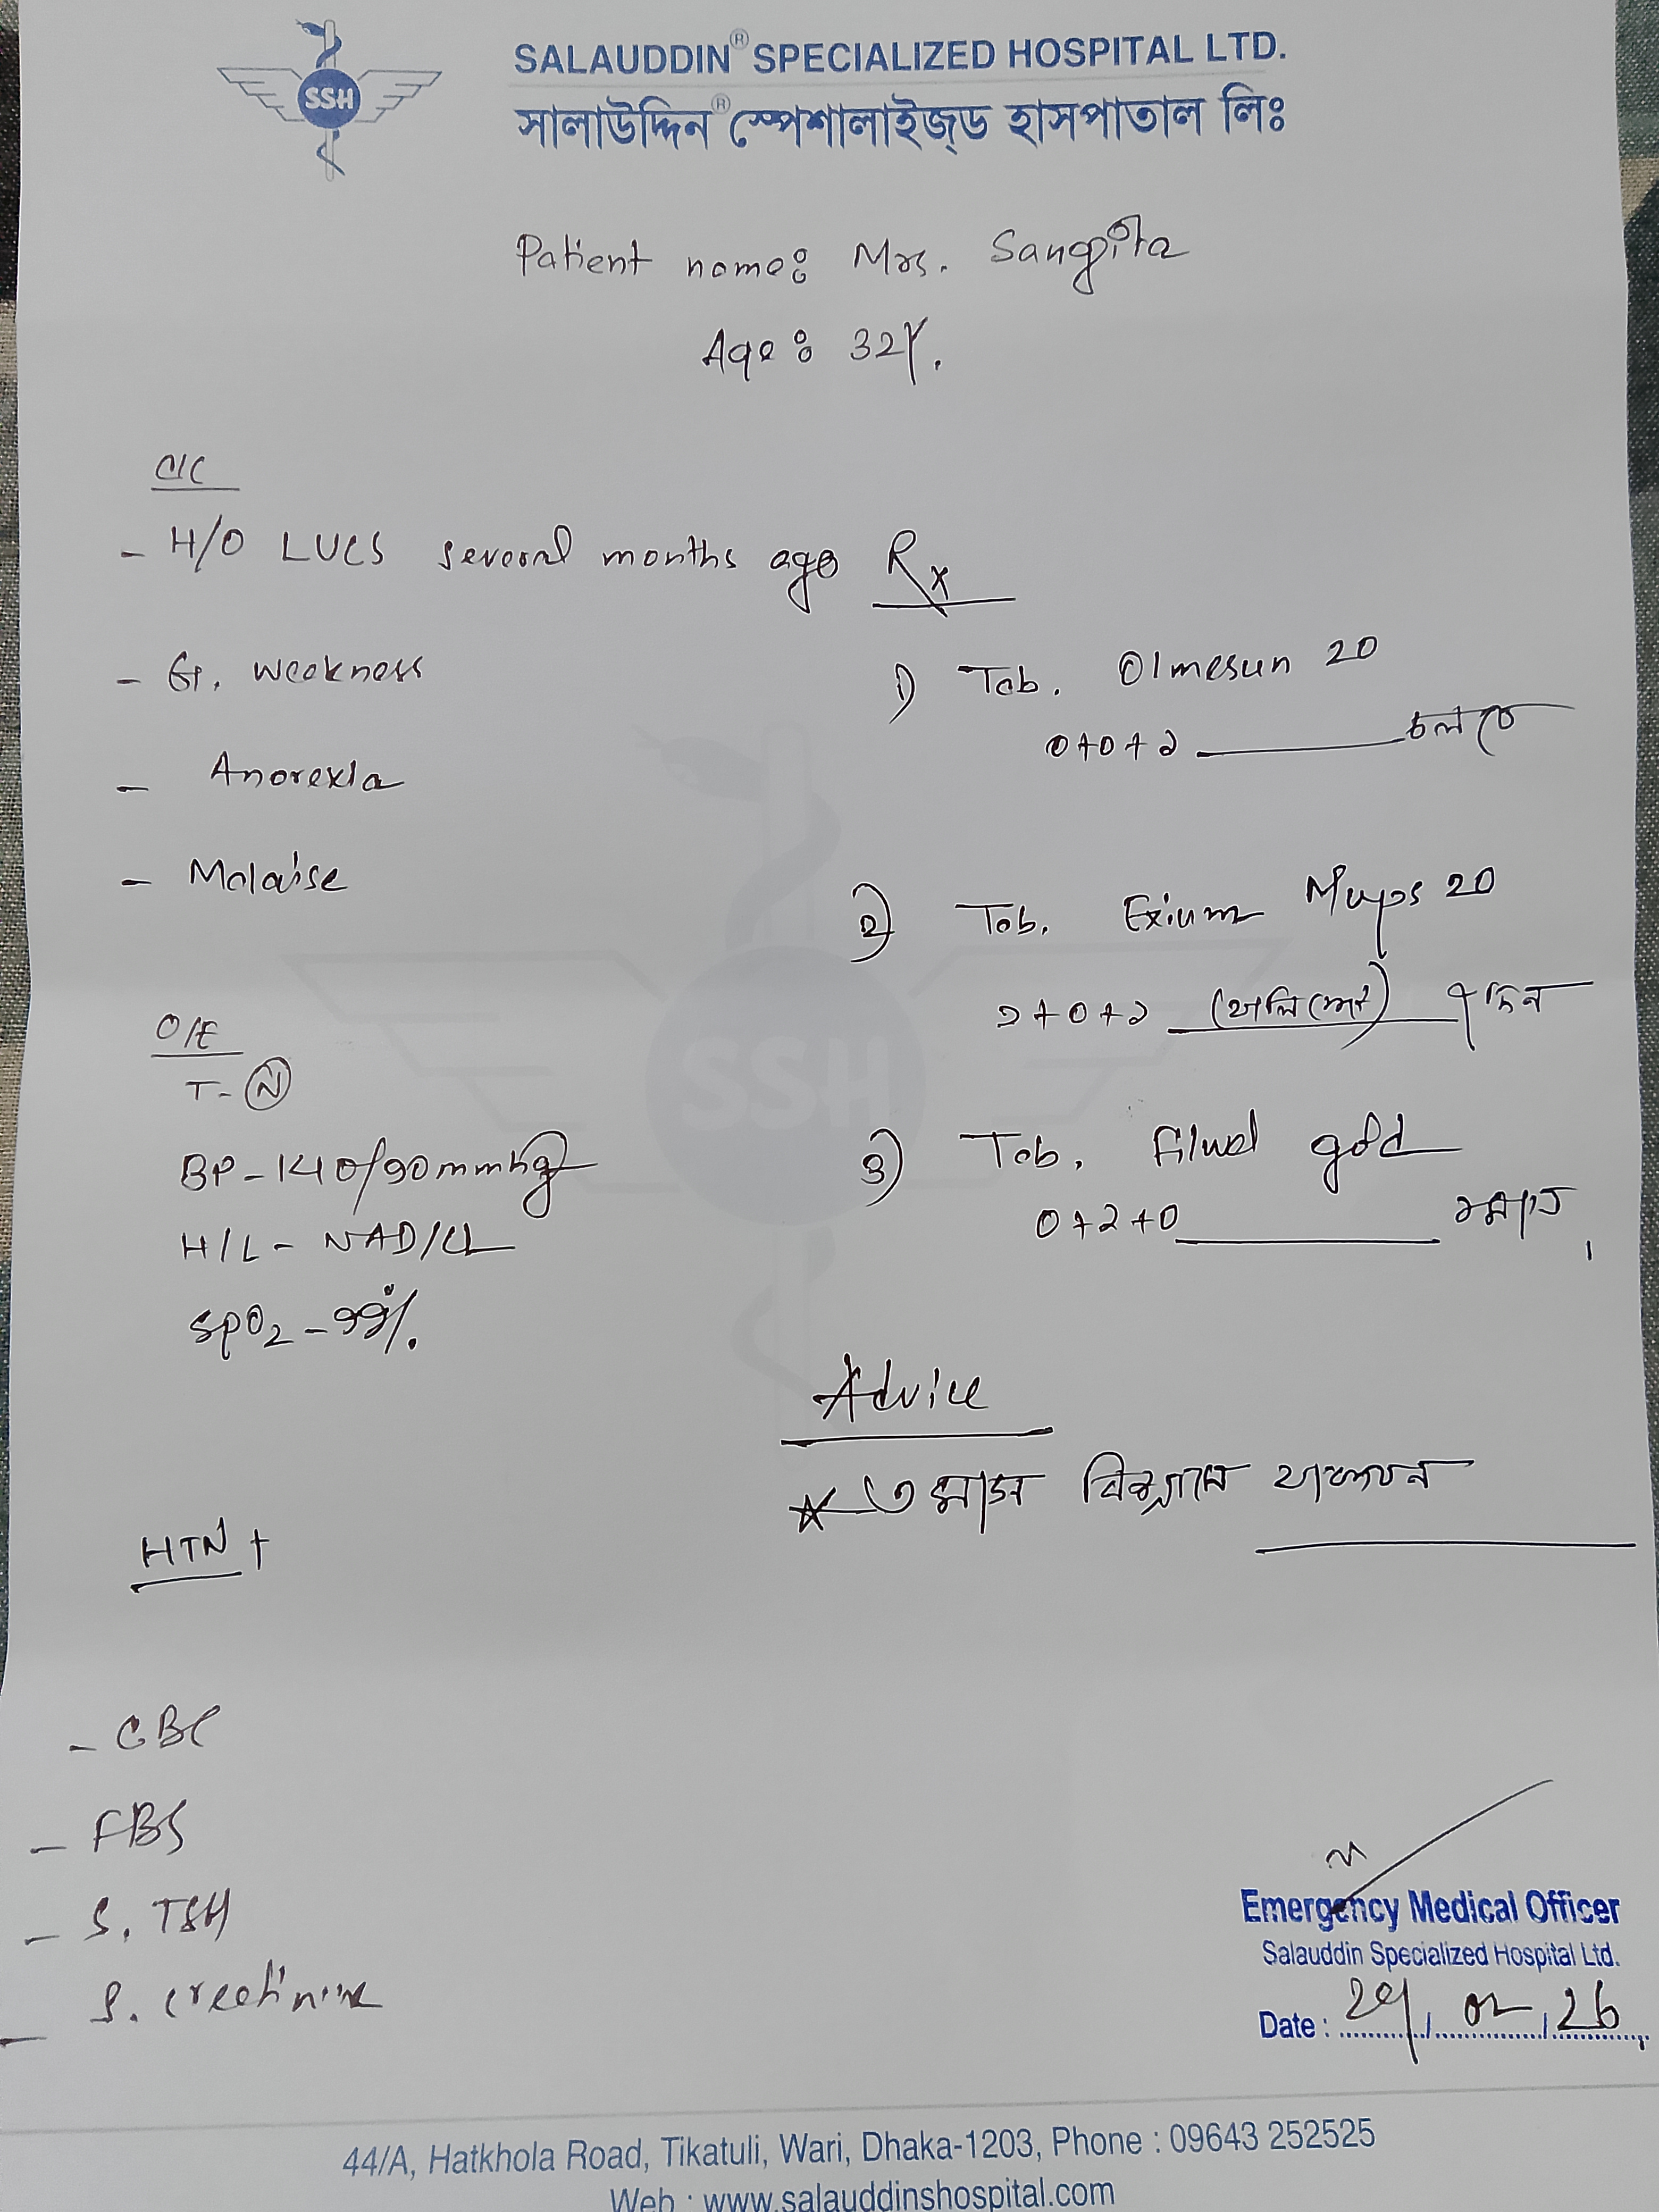 SSH
SALAUDDIN® SPECIALIZED HOSPITAL LTD.
সালাউদ্দিন® স্পেশালাইজ্ড হাসপাতাল লিঃ
Patient name: Mrs. Sangita
Age: 32Y.
C/C
- H/O LUCS several months ago
- G. weakness
- Anorexia
- Malaise
O/E
T- N
BP-140/90mmhg
H/L- NAD/CL
SpO2 -99%.
HTN +
- CBC
- FBS
- S. TSH
- S. creatinine
Rx
1) Tab. Olmesun 20
0+0+১ চলবে
2) Tab. Exium Mups 20
১+0+১ (খালি পেটে) ৭ দিন
3) Tab. Filwel gold
0+১+0 ১ মাস
SSH
Advice
★ ৩ মাস বিশ্রামে থাকবেন
Emergency Medical Officer
Salauddin Specialized Hospital Ltd.
Date : / 02 / 26
44/A, Hatkhola Road, Tikatuli, Wari, Dhaka-1203, Phone : 09643 252525
Web : www.salauddinshospital.com